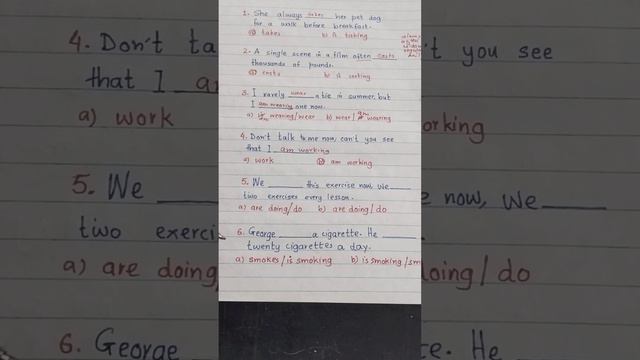 1. She always takes her pet dog
for a walk before breakfast.
a) takes b) is taking
2. A single scene in a film often costs
thousands of pounds.
a) costs b) is costing
3. I rarely wear a tie in summer, but
I am wearing one now.
a) wearing/wear b) wear/am wearing
4. Don't talk to me now, can't you see
that I am working
a) work b) am working
5. We ______ this exercise now, we ____
two exercises every lesson.
a) are doing/do b) are doing/do
6. George ______ a cigarette. He ______
twenty cigarettes a day.
a) smokes/is smoking b) is smoking/sm
4. Don't ta
that I
a) work
5. We ______
two exerci
a) are doing
6. George
't you see
orking
e now, we ____
doing/do
te. He ____